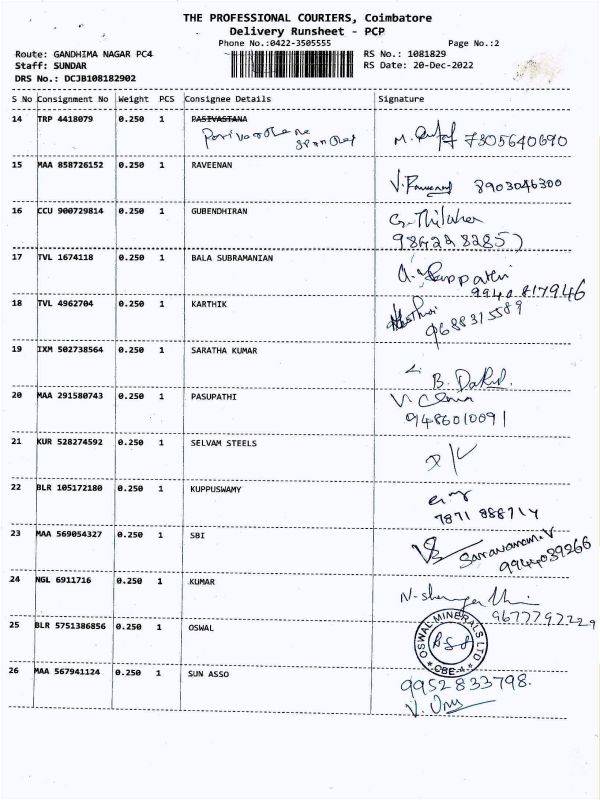 THE PROFESSIONAL COURIERS, Coimbatore
Delivery Runsheet - PCP
Phone No.:0422-3505555 Page No.:2
Route: GANDHIMA NAGAR PC4 RS No.: 1081829
Staff: SUNDAR RS Date: 20-Dec-2022
DRS No.: DCJB108182902
S No Consignment No Weight PCS Consignee Details Signature
14 TRP 4418079 0.250 1 PASIVASTANA
M. 7305640690
15 MAA 858726152 0.250 1 RAVEENAN
8903046300
16 CCU 900729814 0.250 1 GUBENDHIRAN
G. Thilaka
17 TVL 1674118 0.250 1 BALA SUBRAMANIAN
18 TVL 4962704 0.250 1 KARTHIK
9688315589
19 IXM 502738564 0.250 1 SARATHA KUMAR
B.
20 MAA 291580743 0.250 1 PASUPATHI
9486010091
21 KUR 528274592 0.250 1 SELVAM STEELS
22 BLR 105172180 0.250 1 KUPPUSWAMY
7871 888714
23 MAA 569054327 0.250 1 SBI
Saravanam.V
9944039266
24 NGL 6911716 0.250 1 KUMAR
9677797229
25 BLR 5751386856 0.250 1 OSWAL
OSWAL MINERALS LTD
CBE-4
26 MAA 567941124 0.250 1 SUN ASSO
9952833798.